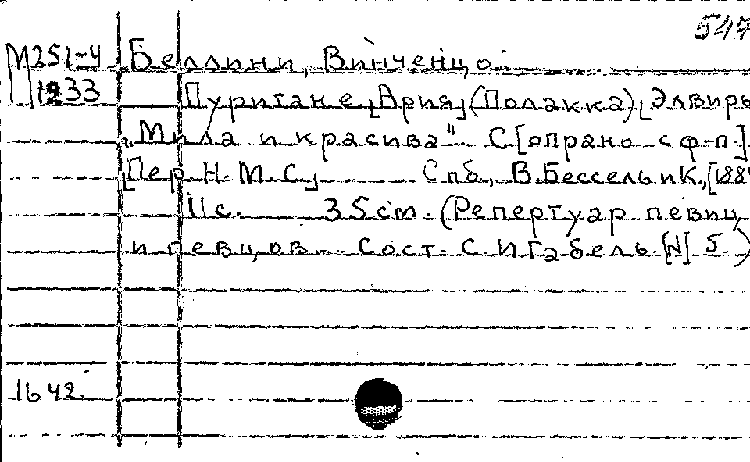 547
М251-4 Беллини, Винченцо.
1233 Пуритане [Ария] (Полакка) [Эльвиры
„Мила и красива". С[опрано с ф-п.]
[Пер. Н.М.С] Спб, В. Бессель и К., [188
11 с. 35 см. (Репертуар певиц
и певцов. Сост. С. И Габель [N] 5)
1642.